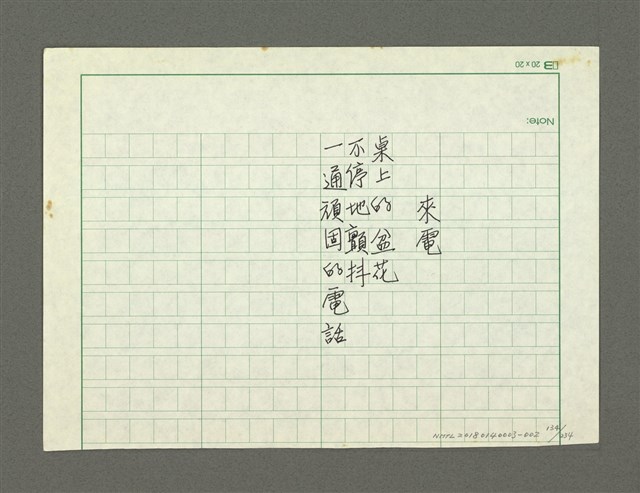 來電
桌上的盆花
不停地顫抖
一通頑固的電話
Note:
B 20×20
NMTL20180140003-002
134/234